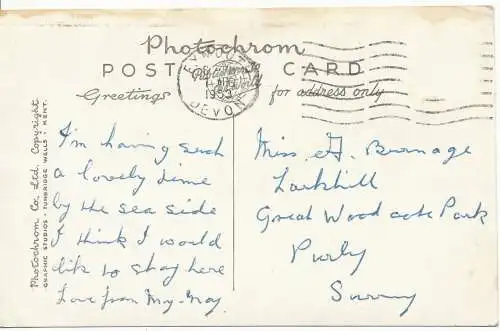 Photochrom
POST CARD
Greetings
for address only
DEVON
Photochrom Co. Ltd. Copyright
GRAPHIC STUDIOS - TUNBRIDGE WELLS - KENT.
I'm having such
a lovely time
by the sea side
I think I would
like to stay here
Love from
Miss Burnage
Larkhill
Great Woodcote Park
Purly
Surrey